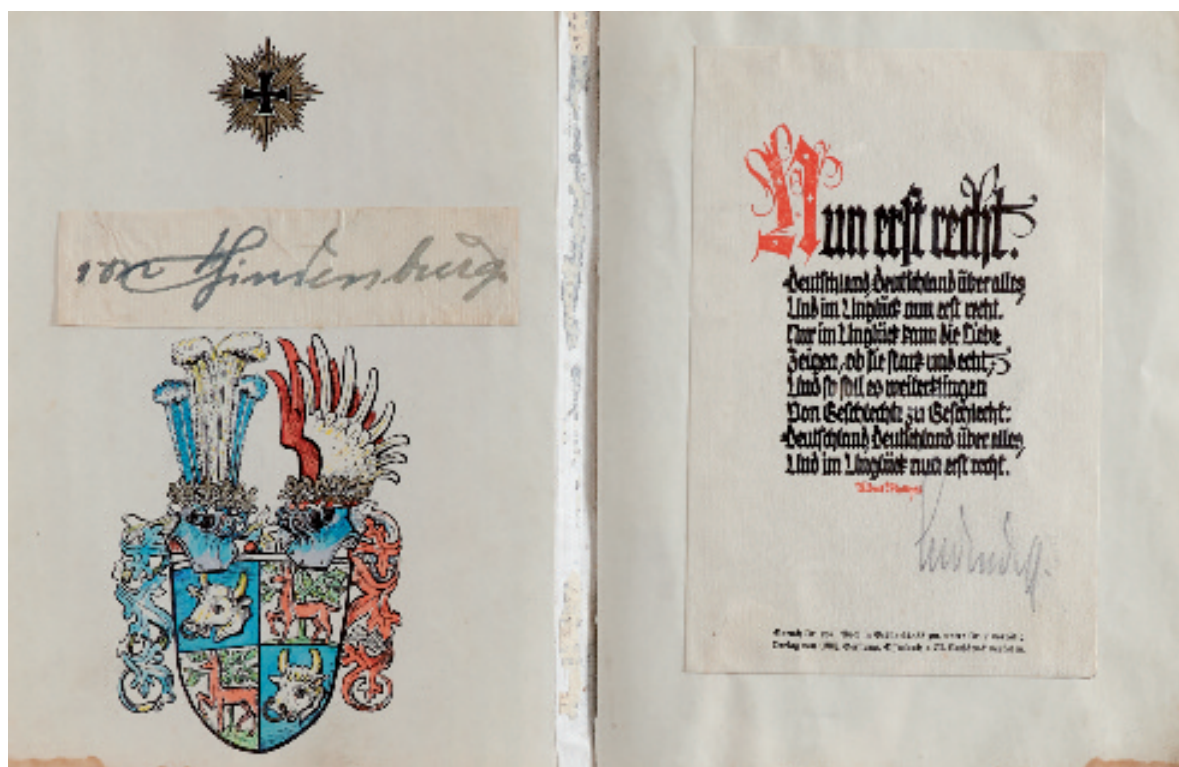 von Hindenburg
Nun erst recht.
Deutschland, Deutschland über alles
Und im Unglück nun erst recht.
Nur im Unglück kann die Liebe
Zeigen, ob sie stark und echt;
Und so soll es weiterklingen
Von Geschlechte zu Geschlecht:
Deutschland, Deutschland über alles
Und im Unglück nun erst recht.
Verlag von